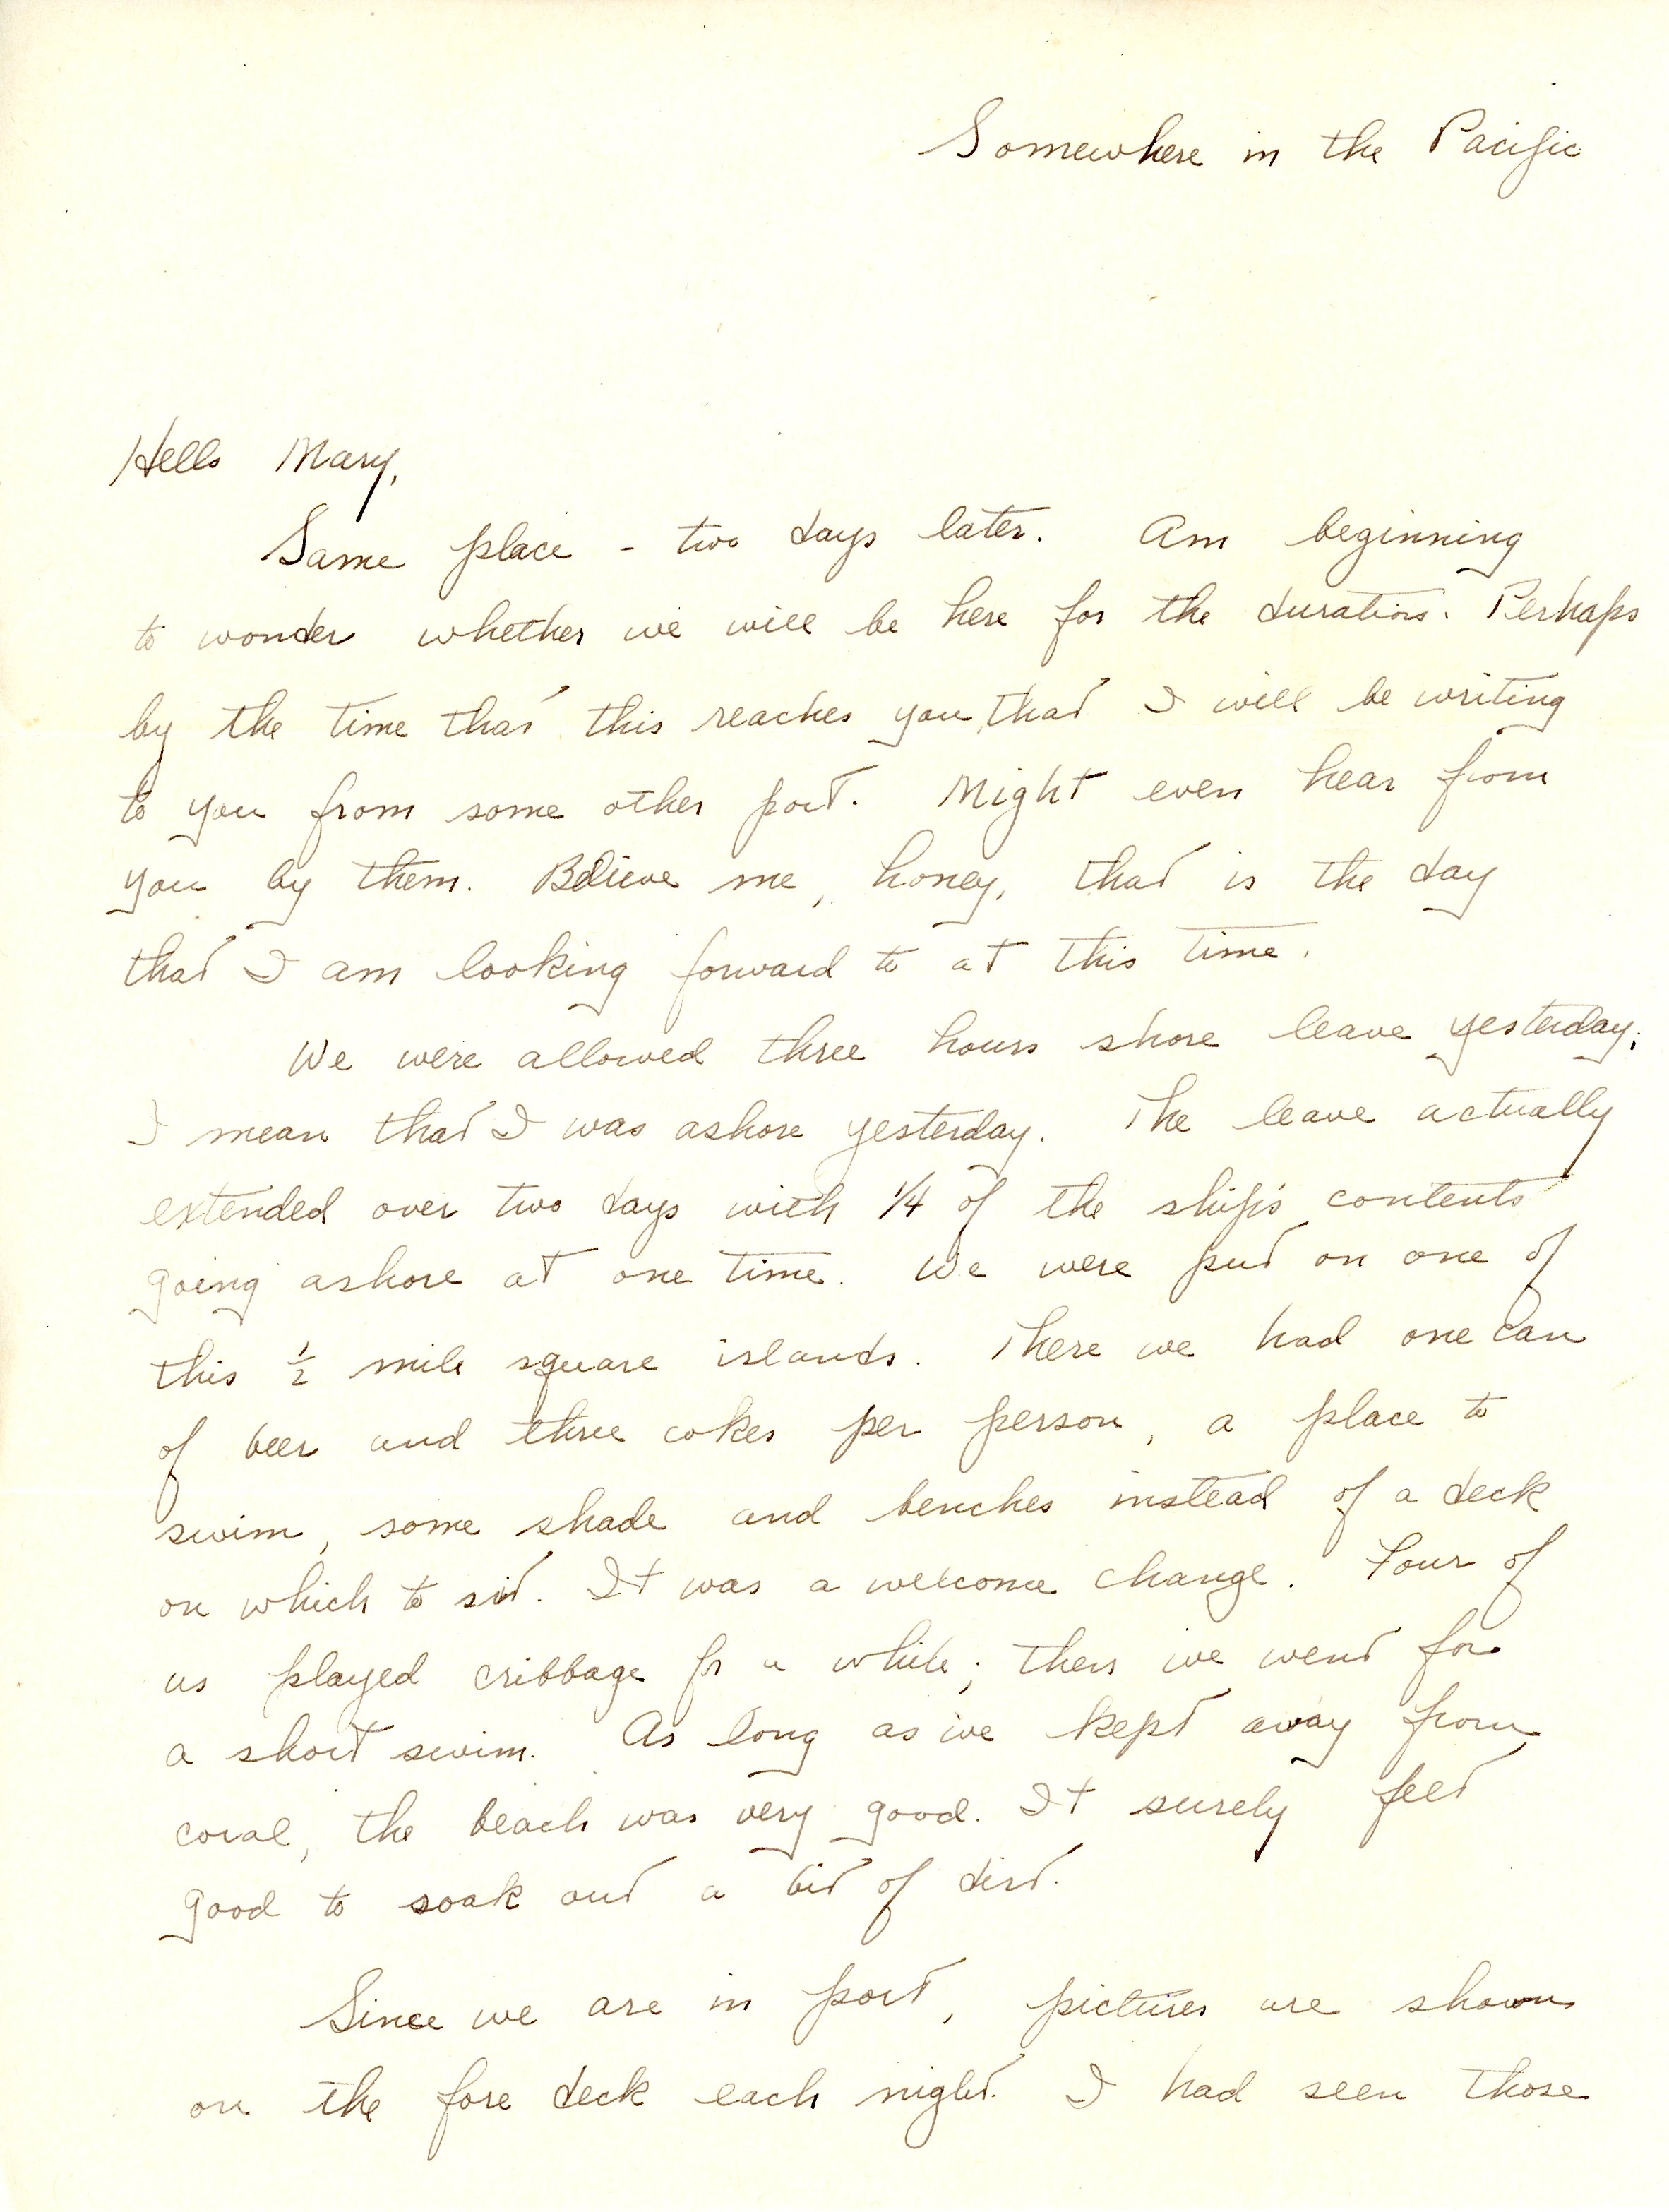 Somewhere in the Pacific
Hello Mary,
Same place - two days later. Am beginning
to wonder whether we will be here for the duration. Perhaps
by the time that this reaches you, that I will be writing
to you from some other port. Might even hear from
you by them. Believe me, honey, that is the day
that I am looking forward to at this time.
We were allowed three hours shore leave yesterday;
I mean that I was ashore yesterday. The leave actually
extended over two days with 1/4 of the ship's contents
going ashore at one time. We were put on one of
this 1/2 mile square islands. There we had one can
of beer and three cokes per person, a place to
swim, some shade and benches instead of a deck
on which to sit. It was a welcome change. Four of
us played cribbage for a while; then we went for
a short swim. As long as we kept away from
coral, the beach was very good. It surely felt
good to soak out a bit of dirt.
Since we are in port, pictures are shown
on the fore deck each night. I had seen those